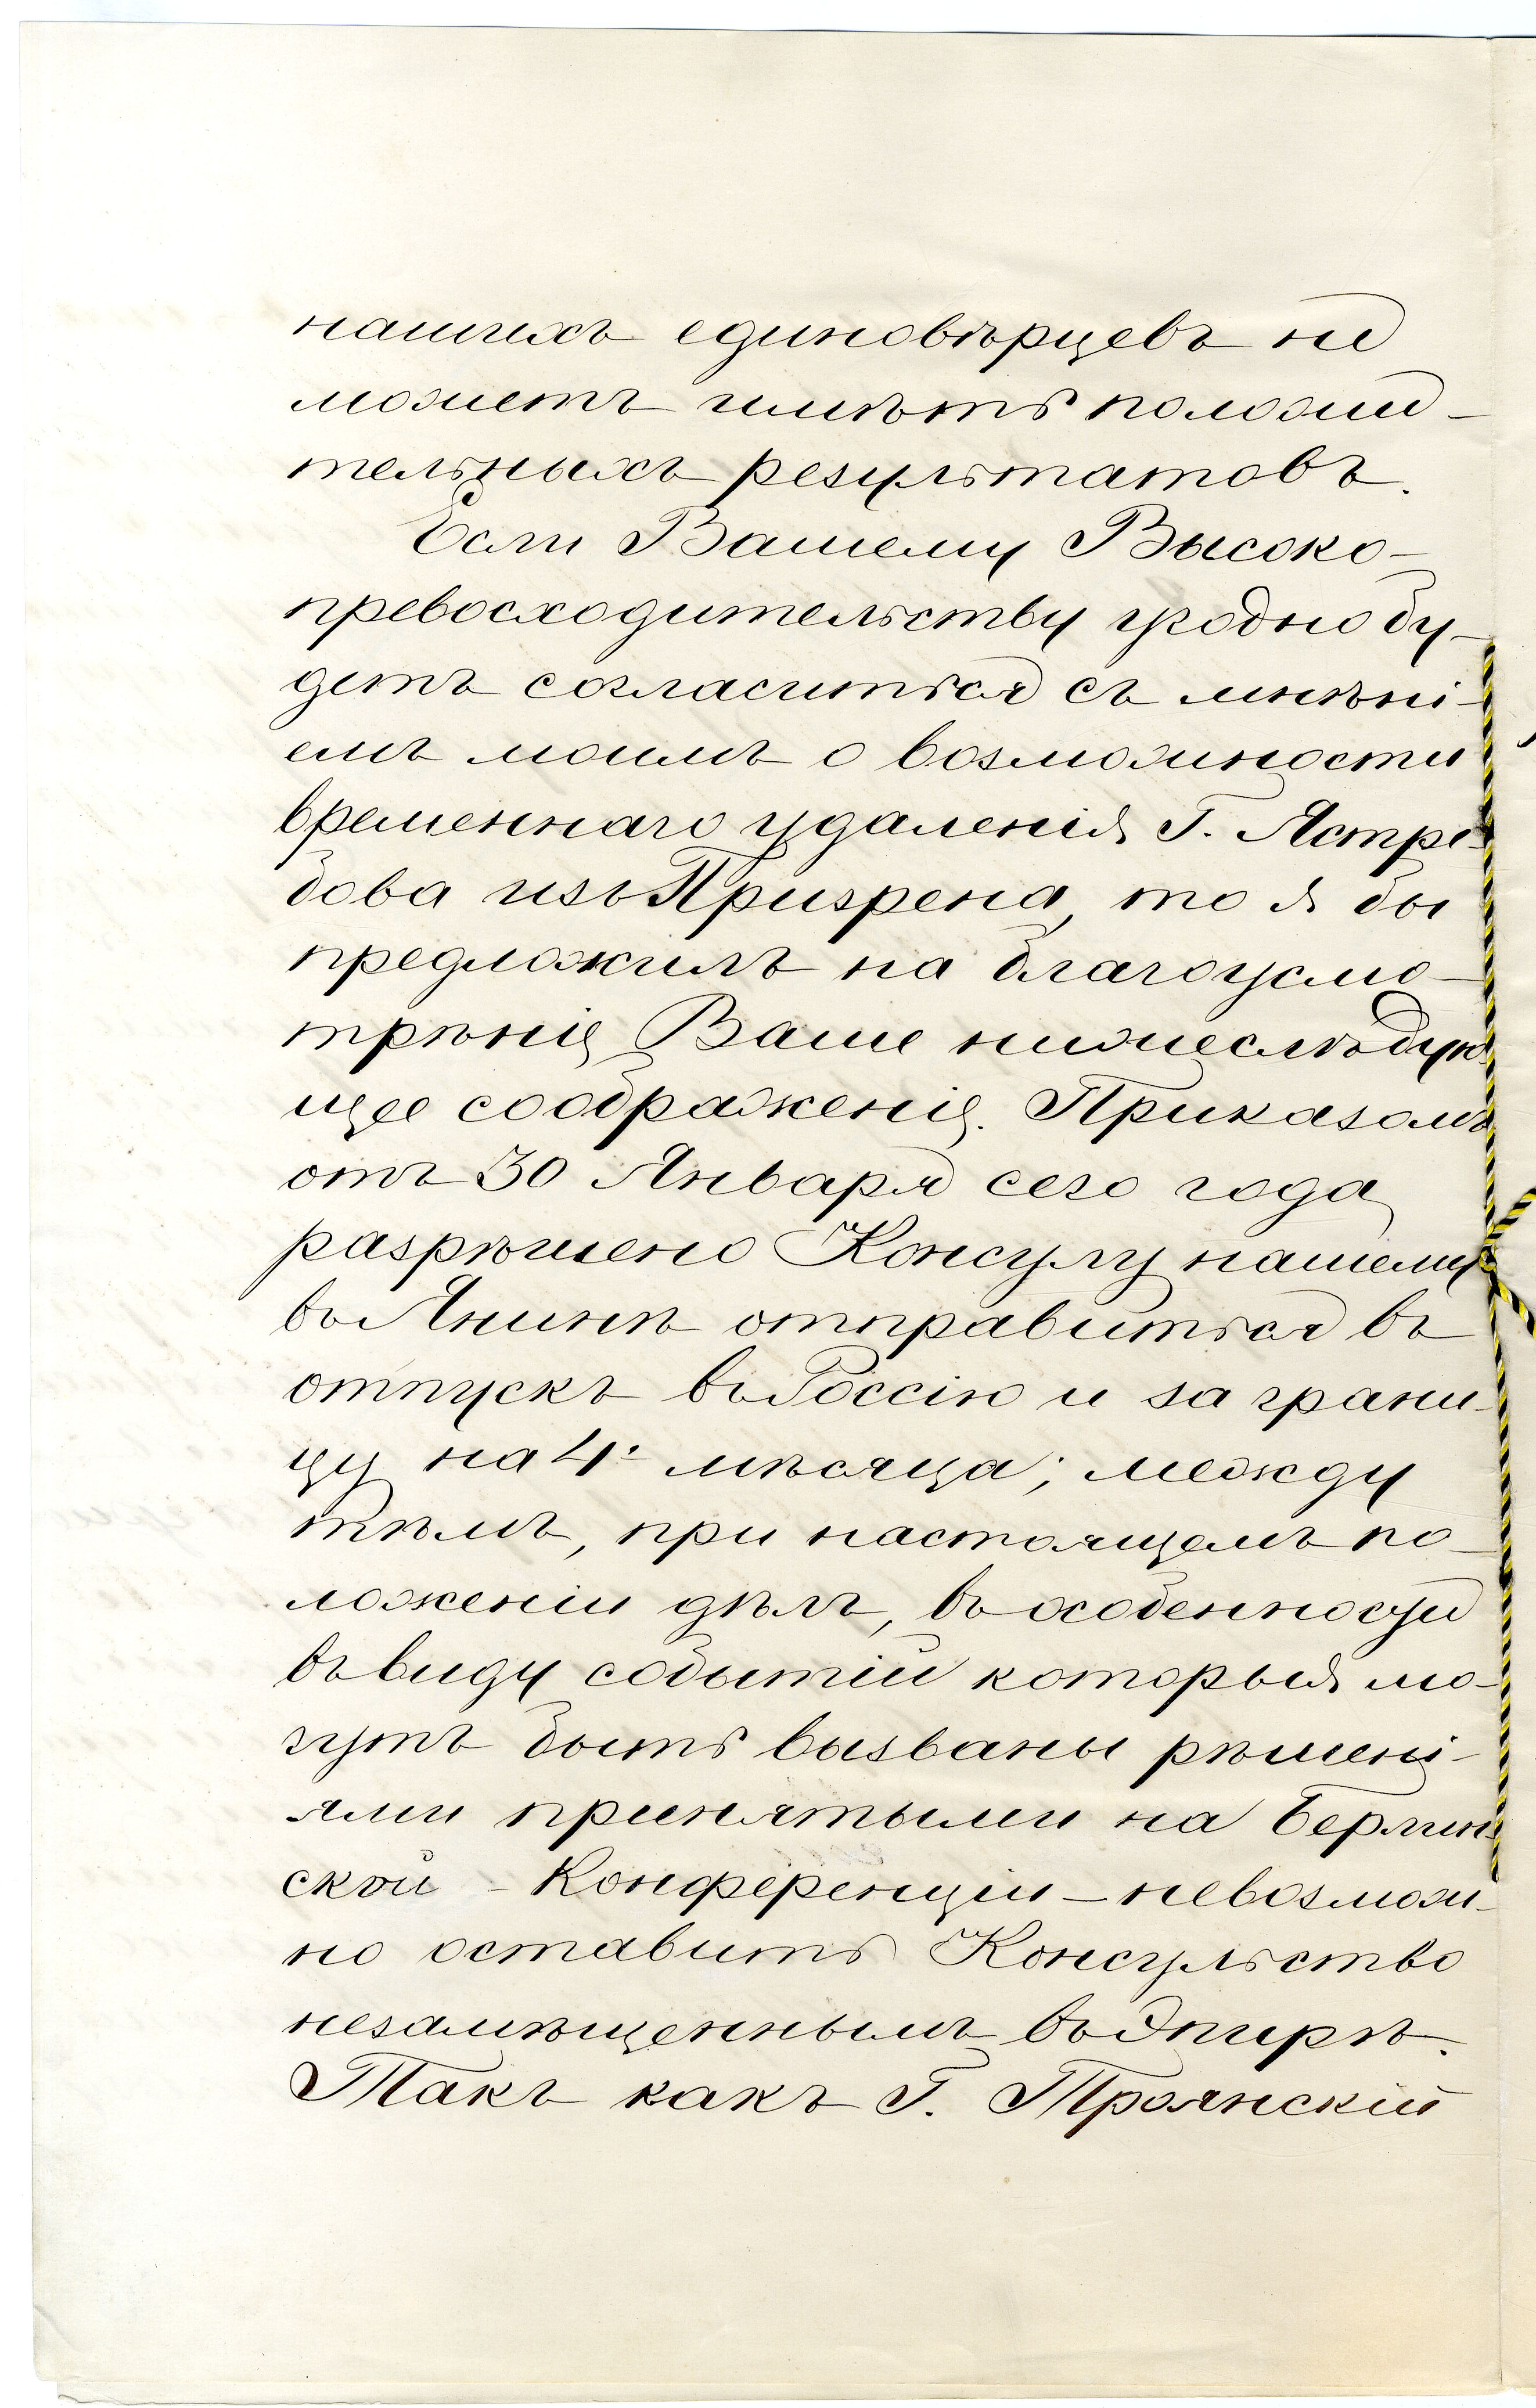 нашихъ единовѣрцевъ не
можетъ имѣть положи-
тельныхъ результатовъ.
Если Вашему Высоко-
превосходительству угодно бу-
детъ согласиться съ мнѣні-
емъ моимъ о возможности
временнаго удаленія Г. Ястре-
бова изъ Призрена, то я бы
предложилъ на благоусмо-
трѣніе Ваше нижеслѣдую-
щее соображеніе. Приказомъ
отъ 30 Января сего года
разрѣшено Консулу нашему
въ Янинѣ отправиться въ
отпускъ въ Россію и за грани-
цу на 4 мѣсяца; между
тѣмъ, при настоящемъ по-
ложеніи дѣлъ, въ особенности
въ виду событій которыя мо-
гутъ быть вызваны рѣшені-
ями принятыми на Берлин-
ской Конференціи – невозмож-
но оставить Консульство
незамѣщеннымъ въ Эпирѣ.
Такъ какъ Г. Троянскій